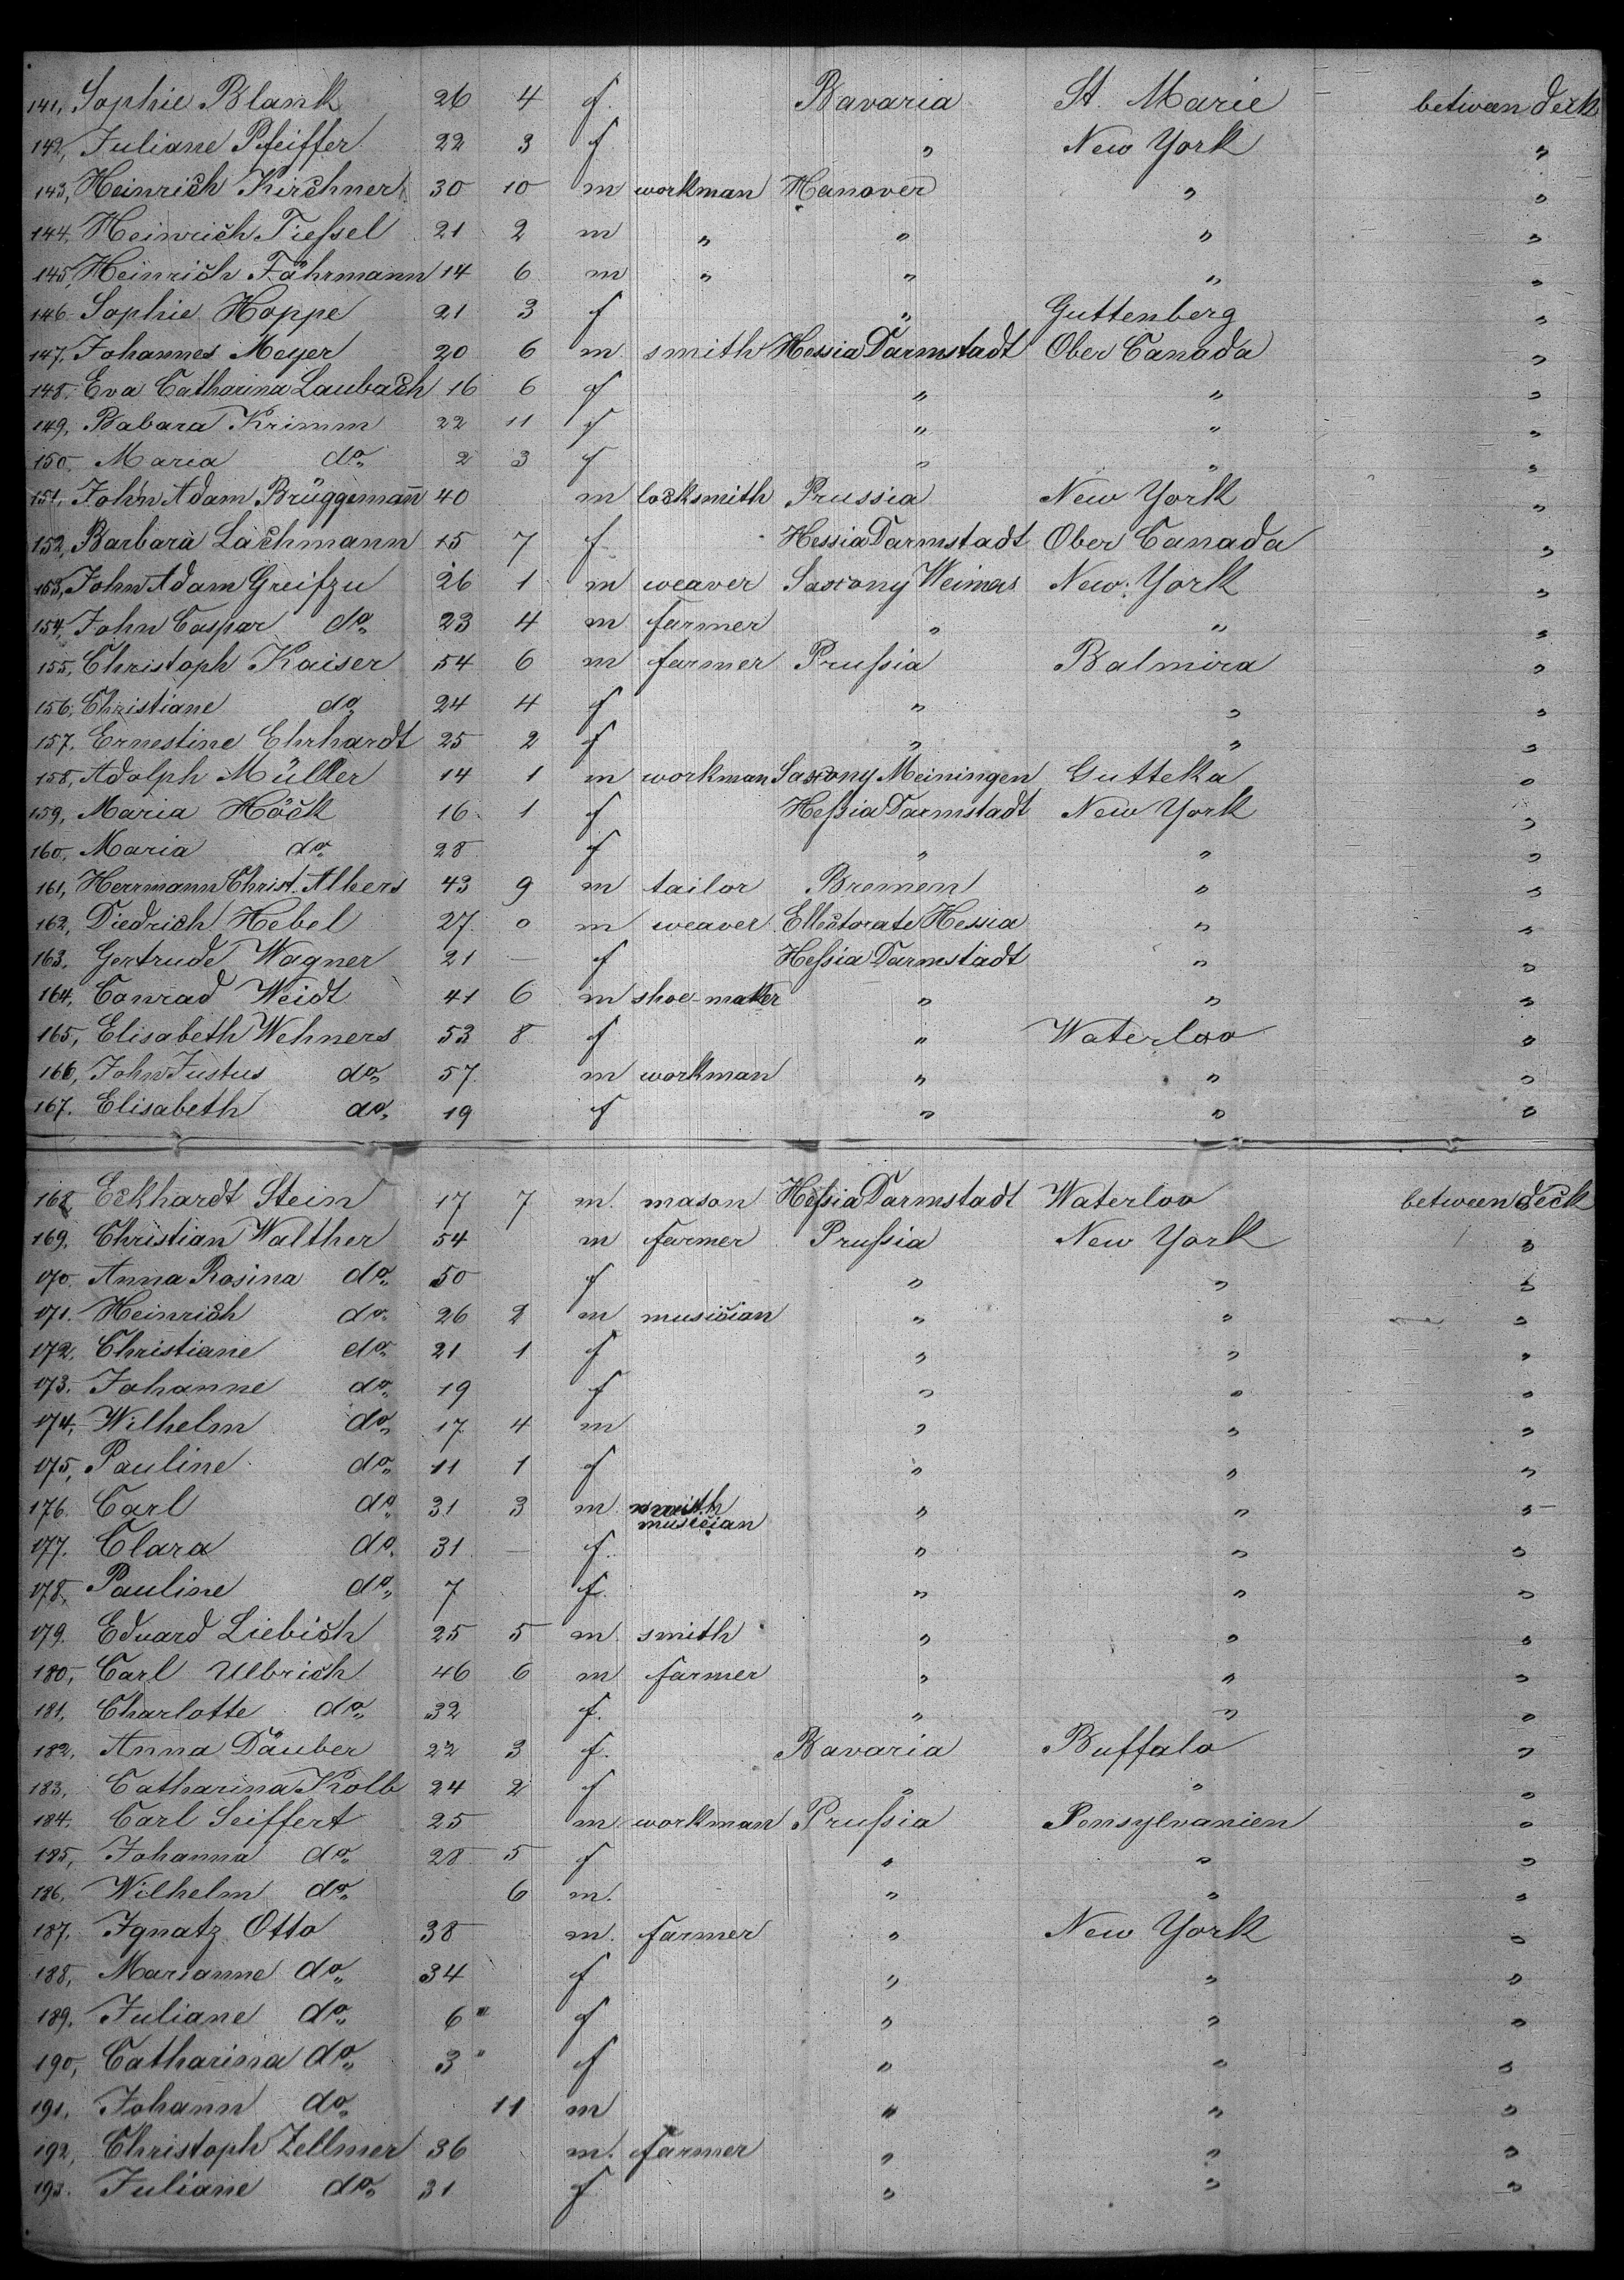 141, Sophie Blank 26 4 f. Bavaria St. Marie between deck
142, Juliane Pfeiffer 22 3 f " New York "
143, Heinrich Kirchner 30 10 m workman Hanover " "
144, Heinrich Tieſsel 21 2 m " " " "
145, Heinrich Fährmann 14 6 m " " " "
146 Sophie Hoppe 21 3 f " Guttenberg "
147. Johannes Meyer 20 6 m smith Hessia Darmstadt Ober Canada "
148. Eva Catharina Laubach 16 6 f " " "
149, Babara Krimm 22 11 f " " "
150, Maria do 2 3 f " " "
151, John Adam Brüggemañ 40 m locksmith Prussia New York "
152, Barbara Lachmann 15 7 f Hessia Darmstadt Ober Canada "
153, John Adam Greifzu 26 1 m weaver Saxony Weimar New York "
154, John Caspar do 23 4 m farmer " " "
155, Christoph Kaiser 54 6 m farmer Pruſsia Balmira "
156, Christiane do 24 4 f " " "
157. Ernestine Ehrhardt 25 2 f " " "
158, Adolph Müller 14 1 m workman Saxony Meiningen Gutteka "
159, Maria Höck 16 1 f Heſsia Darmstadt New York "
160, Maria do 28 f " " "
161, Herrmann Christ. Albers 43 9 m tailor Bremen " "
162, Diedrich Hebel 27 0 m weaver Ellectorate Hessia " "
163. Gertrude Wagner 21 — f Heſsia Darmstadt " "
164, Conrad Weidt 41 6 m shoe-maker " " "
165, Elisabeth Wehners 53 8 f " Waterloo "
166, John Justus do 57 m workman " " "
167. Elisabeth do 19 f " " "
168 Eckhardt Stein 17 7 m. mason Heſsia Darmstadt Waterloo between deck
169. Christian Walther 54 m farmer Pruſsia New York "
170. Anna Rosina do 50 f " " "
171. Heinrich do 26 2 m musician " " "
172. Christiane do 21 1 f " " "
173. Johanne do 19 f " " "
174, Wilhelm do 17 4 m " " "
175, Pauline do 11 1 f " " "
176. Carl do 31 3 m smith musician " " "
177. Clara do 31 — f. " " "
178, Pauline do 7 f. " " "
179. Eduard Liebich 25 5 m. smith " " "
180, Carl Ulbrich 46 6 m farmer " " "
181, Charlotte do 32 f. " " "
182, Anna Däuber 22 3 f. Bavaria Buffalo "
183, Catharina Kolb 24 2 f " " "
184, Carl Seiffert 25 m workman Pruſsia Pensylvanien "
185, Johanna do 28 5 f " " "
186, Wilhelm do 6 m. " " "
187, Ignatz Otto 38 m. farmer " New York "
188, Marianne do 34 f " " "
189, Juliane do 6 " f " " "
190, Catharina do 3 " f " " "
191, Johann do 11 m " " "
192, Christoph Zellmer 36 m. farmer " " "
193. Juliane do 31 f " " "